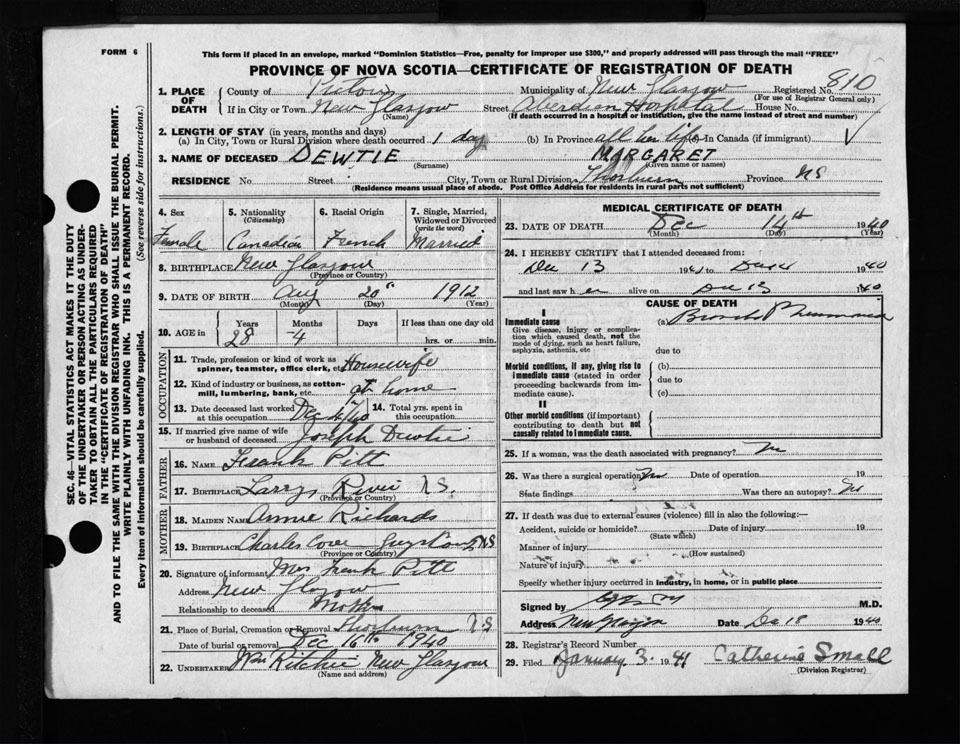 FORM 6
This form if placed in an envelope, marked "Dominion Statistics—Free, penalty for improper use $300," and properly addressed will pass through the mail "FREE"
PROVINCE OF NOVA SCOTIA—CERTIFICATE OF REGISTRATION OF DEATH
SEC. 46—VITAL STATISTICS ACT MAKES IT THE DUTY
OF THE UNDERTAKER OR PERSON ACTING AS UNDER-
TAKER TO OBTAIN ALL THE PARTICULARS REQUIRED
IN THE "CERTIFICATE OF REGISTRATION OF DEATH"
AND TO FILE THE SAME WITH THE DIVISION REGISTRAR WHO SHALL ISSUE THE BURIAL PERMIT.
WRITE PLAINLY WITH UNFADING INK. THIS IS A PERMANENT RECORD.
Every item of information should be carefully supplied. (See reverse side for instructions.)
1. PLACE OF DEATH County of Pictou Municipality of New Glasgow Registered No. 810
(For use of Registrar General only)
If in City or Town New Glasgow Street Aberdeen Hospital House No.
(Name) (If death occurred in a hospital or institution, give the name instead of street and number)
2. LENGTH OF STAY (in years, months and days)
(a) In City, Town or Rural Division where death occurred 1 day (b) In Province all her life (c) In Canada (if immigrant)
3. NAME OF DECEASED DEWTIE MARGARET
(Surname) (Given name or names)
RESIDENCE No. Street City, Town or Rural Division Thorburn Province NS
(Residence means usual place of abode. Post Office Address for residents in rural parts not sufficient)
4. Sex 5. Nationality (Citizenship) 6. Racial Origin 7. Single, Married, Widowed or Divorced (write the word)
Female Canadian French Married
8. BIRTHPLACE New Glasgow
(Province or Country)
9. DATE OF BIRTH Aug 20th 1912
(Month) (Day) (Year)
10. AGE in Years Months Days If less than one day old
28 4 hrs. or min.
OCCUPATION
11. Trade, profession or kind of work as spinner, teamster, office clerk, etc. Housewife
12. Kind of industry or business, as cotton-mill, lumbering, bank, etc. at home
13. Date deceased last worked at this occupation Dec /40 14. Total yrs. spent in this occupation
15. If married give name of wife or husband of deceased Joseph Dewtie
FATHER
16. NAME Frank Pitt
17. BIRTHPLACE Larrys River N.S.
(Province or Country)
MOTHER
18. MAIDEN NAME Annie Richards
19. BIRTHPLACE Charles Cove NS
(Province or Country)
20. Signature of informant Mrs Frank Pitt
Address New Glasgow
Relationship to deceased Mother
21. Place of Burial, Cremation or Removal Thorburn N.S
Date of burial or removal Dec 16th 1940
22. UNDERTAKER Wm Ritchie New Glasgow
(Name and address)
MEDICAL CERTIFICATE OF DEATH
23. DATE OF DEATH Dec 14th 1940
(Month) (Day) (Year)
24. I HEREBY CERTIFY that I attended deceased from:
Dec 13 19 to 1940
and last saw her alive on Dec 13 1940
CAUSE OF DEATH
I
Immediate cause (a) Broncho Pneumonia
Give disease, injury or complication which caused death, not the mode of dying, such as heart failure, asphyxia, asthenia, etc
due to
Morbid conditions, if any, giving rise to immediate cause (stated in order proceeding backwards from immediate cause). (b)
due to
(c)
II
Other morbid conditions (if important) contributing to death but not causally related to immediate cause.
25. If a woman, was the death associated with pregnancy? No
26. Was there a surgical operation? No Date of operation 19
State findings Was there an autopsy? No
27. If death was due to external causes (violence) fill in also the following:—
Accident, suicide or homicide? Date of injury 19
(State which)
Manner of injury
(How sustained)
Nature of injury
Specify whether injury occurred in industry, in home, or in public place
Signed by M.D.
Address New Glasgow Date Dec 18 1940
28. Registrar's Record Number
29. Filed January 3. 1941 Catherine Small
(Division Registrar)